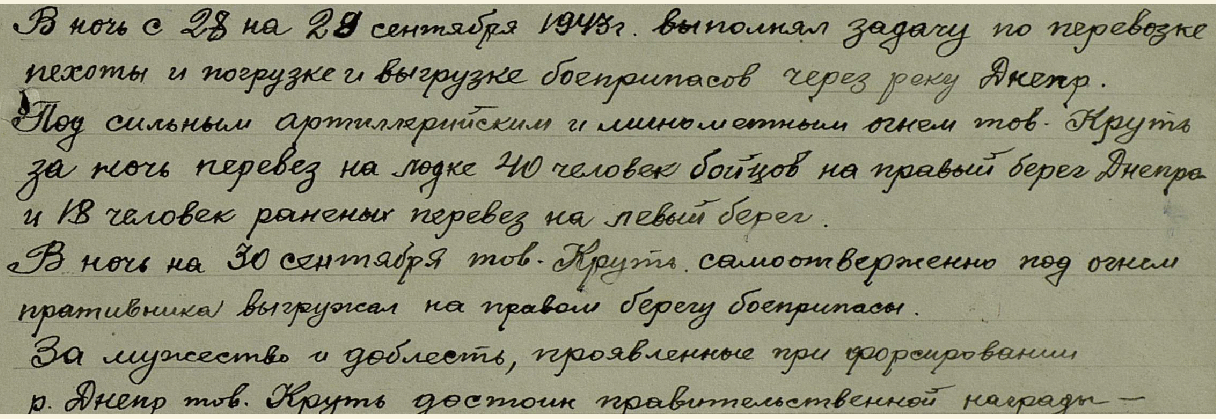 В ночь с 28 на 29 сентября 1943г. выполнял задачу по перевозке
пехоты и погрузке и выгрузке боеприпасов через реку Днепр.
Под сильным артиллерийским и минометным огнем тов. Круть
за ночь перевез на лодке 40 человек бойцов на правый берег Днепра
и 18 человек раненых перевез на левый берег.
В ночь на 30 сентября тов. Круть самоотверженно под огнем
пративника выгружал на правом берегу боеприпасы.
За мужество и доблесть, проявленные при форсировании
р. Днепр тов. Круть достоин правительственной награды —